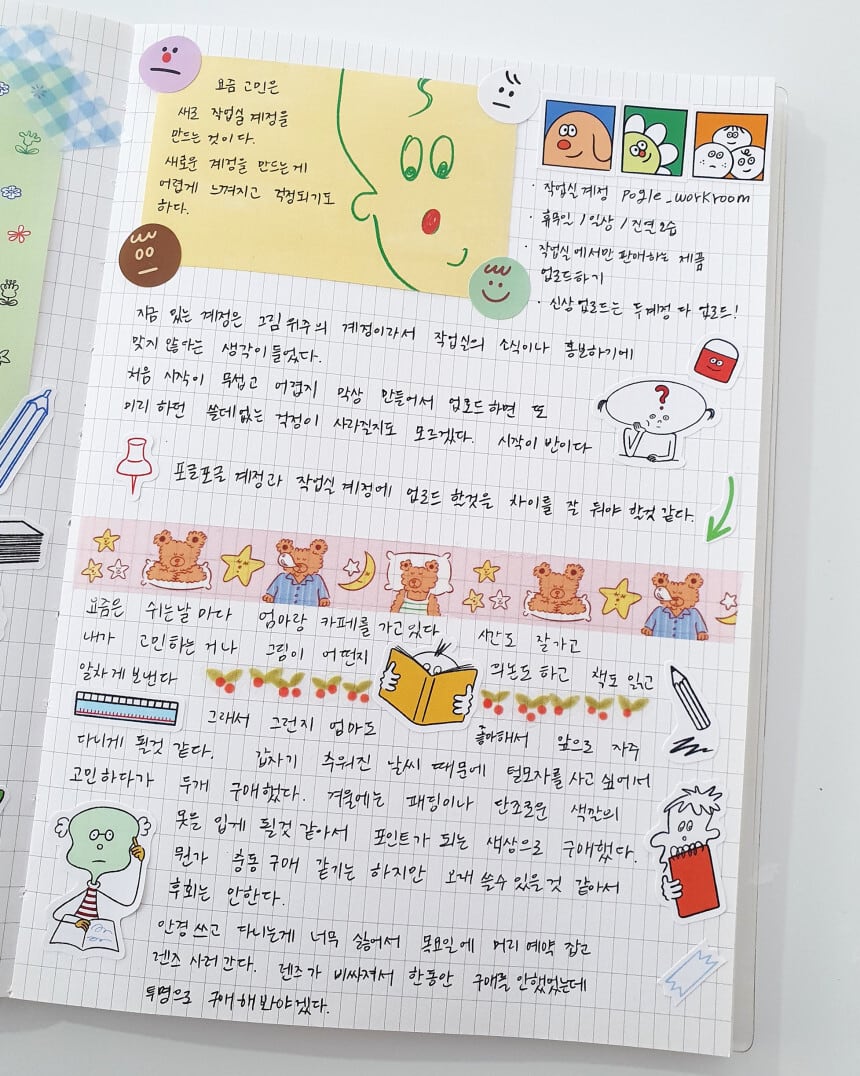 요즘 고민은
새로 작업실 계정을
만드는 것이다.
새로운 계정을 만드는게
어렵게 느껴지고 걱정되기도
하다.
· 작업실계정 pogle_workroom
· 휴무일 / 일상 / 진열모습
· 작업실에서만 판매하는 제품
업로드하기
· 신상업로드는 두계정 다 업로드!
지금 있는 계정은 그림위주의 계정이라서 작업실의 소식이나 홍보하기에
맞지 않아는 생각이 들었다.
처음 시작이 무섭고 어렵지 막상 만들어서 업로드하면 또
미리 하던 쓸데없는 걱정이 사라질지도 모르겠다. 시작이 반이다
?
포글포글 계정과 작업실 계정에 업로드 할것은 차이를 잘 둬야 할것 같다.
요즘은 쉬는날 마다 엄마랑 카페를 가고있다 시간도 잘가고
내가 고민하는 거나 그림이 어떤지 의논도 하고 책도 읽고
알차게 보낸다
그래서 그런지 엄마도 좋아해서 앞으로 자주
다니게 될것 같다. 갑자기 추워진 날씨 때문에 털모자를 사고 싶어서
고민하다가 두개 구매했다. 겨울에는 패딩이나 단조로운 색깔의
옷을 입게 될것 같아서 포인트가 되는 색상으로 구매했다.
뭔가 충동구매 같기는 하지만 오래 쓸수있을것 같아서
후회는 안한다.
안경쓰고 다니는게 너무 싫어서 목요일에 머리 예약 잡고
렌즈 사러 간다. 렌즈가 비싸져서 한동안 구매를 안했었는데
투명으로 구매해봐야겠다.